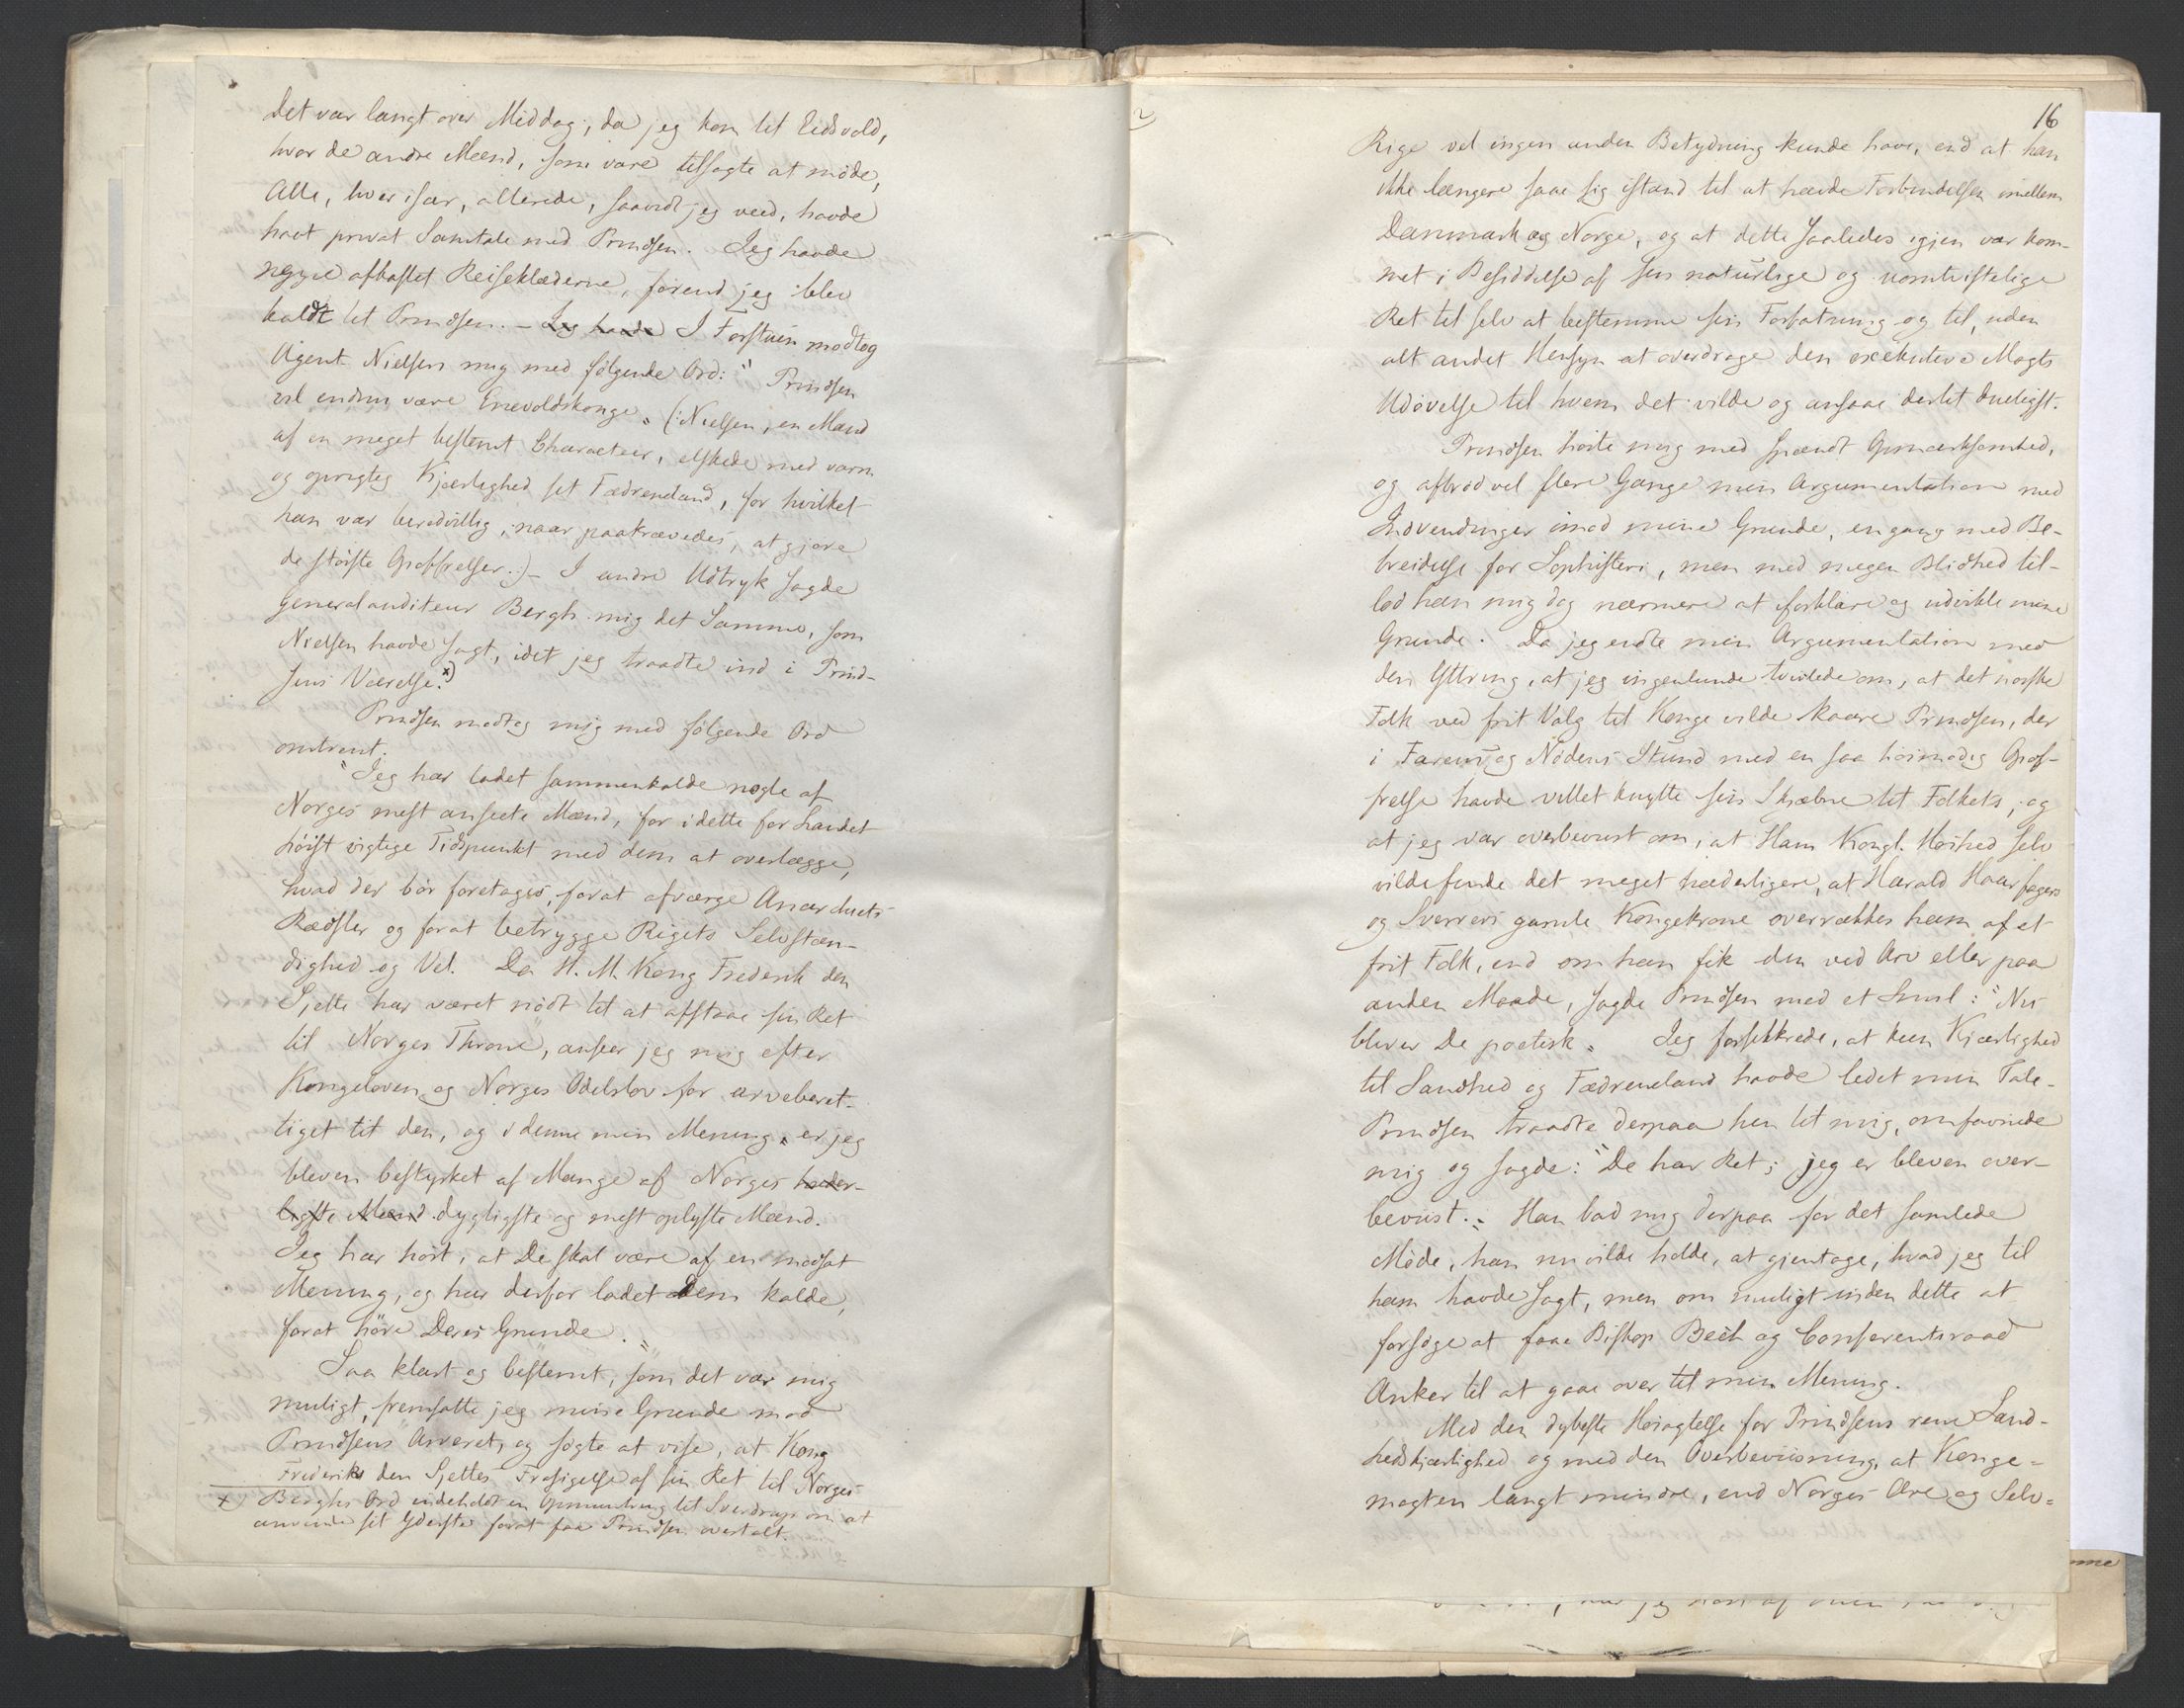 Det var langt over Middag, da jeg kom til Eidsvold,
hvor de andre Mænd, som vare tilsagte at møde,
Alle, hver især, allerede, saavidt jeg veed, havde
havt privat Samtale med Prindsen. Jeg havde
neppe afkastet Reiseklæderne, førend jeg blev
kaldt til Prindsen. – Jeg havde I Forstuen modtog
Agent Nielsen mig med følgende Ord: "Prindsen
vil endnu være Enevoldskonge„ (: Nielsen, en Mand
af en meget bestemt Characteer, elskede med varm
og oprigtig Kjærlighed sit Fædreneland, for hvilket
han var beredvillig, naar paakrævedes, at gjøre
de største Opoffrelser :) – I andre Udtryk sagde
Generalauditeur Bergh mig det Samme, som
Nielsen havde sagt, idet jeg traadte ind i Prind-
sens Værelse. x)
Prindsen modtog mig med følgende Ord
omtrent:
"Jeg har ladet sammenkalde nogle af
Norges mest anseete Mænd, for i dette for Landet
høist vigtige Tidspunkt med dem at overlægge,
hvad der bør foretages, forat afværge Anarchiets
Rædsler og forat betrygge Rigets Selvstæn-
dighed og Vel. Da H. M. Kong Frederik den
Sjette har været nødt til at afstaae sin Ret
til Norges Throne, anseer jeg mig efter
Kongeloven og Norges Odelslov for arveberet-
tiget til den, og i denne min Mening er jeg
bleven bestyrket af Mange af Norges hæder-
ligste Mænd dygtigste og mest oplyste Mænd.
Jeg har hørt, at De skal være af en modsat
Mening, og har derfor ladet Dem kalde,
forat høre Deres Grunde.„
Saa klart og bestemt, som det var mig
muligt, fremsatte jeg mine Grunde mod
Prindsens Arveret, og søgte at vise, at Kong
Frederiks den Sjettes Frasigelse af sin Ret til Norges
x) Berghs Ord indeholdt en Opmuntring til Sverdrup om at
anvende sit Yderste forat faae Prindsen overtalt.
2
16
Rige vel ingen anden Betydning kunde have, end at han
ikke længere saae sig istand til at hævde Forbindelsen imellem
Danmark og Norge, og at dette saaledes igjen var kom-
met i Besiddelse af sin naturlige og uomtvistelige
Ret til selv at bestemme sin Forfatning og til, uden
alt andet Hensyn at overdrage den exekutive Magts
Udøvelse til hvem det vilde og ansaae dertil dueligst.
Prindsen hørte mig med spændt Opmærksomhed,
og afbrød vel flere Gange min Argumentation med
Indvendinger imod mine Grunde, engang med Be-
breidelse for Sophisteri, men med megen Blidhed til-
lod han mig dog nærmere at forklare og udvikle mine
Grunde. Da jeg endte min Argumentation med
den Yttring, at jeg ingenlunde tvivlede om, at det norske
Folk ved frit Valg til Konge vilde kaare Prindsen, der
i Farens og Nødens Stund med en saa høimodig Opof-
frelse havde villet knytte sin Skjæbne til Folkets, og
at jeg var overbeviist om, at Hans Kongl. Høihed selv
vilde finde det meget hæderligere, at Harald Haarfagers
og Sverrers gamle Kongekrone overrækkes ham af et
frit Folk, end om han fik den ved Arv eller paa
anden Maade, sagde Prindsen med et Smil: "Nu
bliver De poetisk„ Jeg forsikkrede, at kun Kjærlighed
til Sandhed og Fædreneland havde ledet min Tale.
Prindsen traadte derpaa hen til mig, omfavnede
mig og sagde: "De har Ret; jeg er bleven over-
beviist.„ Han bad mig derpaa for det samlede
Møde, han nu vilde holde, at gjentage, hvad jeg til
ham havde sagt, men om muligt inden dette at
forsøge at faae Biskop Bech og Conferentsraad
Anker til at gaae over til min Mening.
Med den dybeste Høiagtelse for Prindsens rene Sand-
hedskjærlighed og med den Overbeviisning, at Konge-
magten langt mindre, end Norges Ære og Selv-